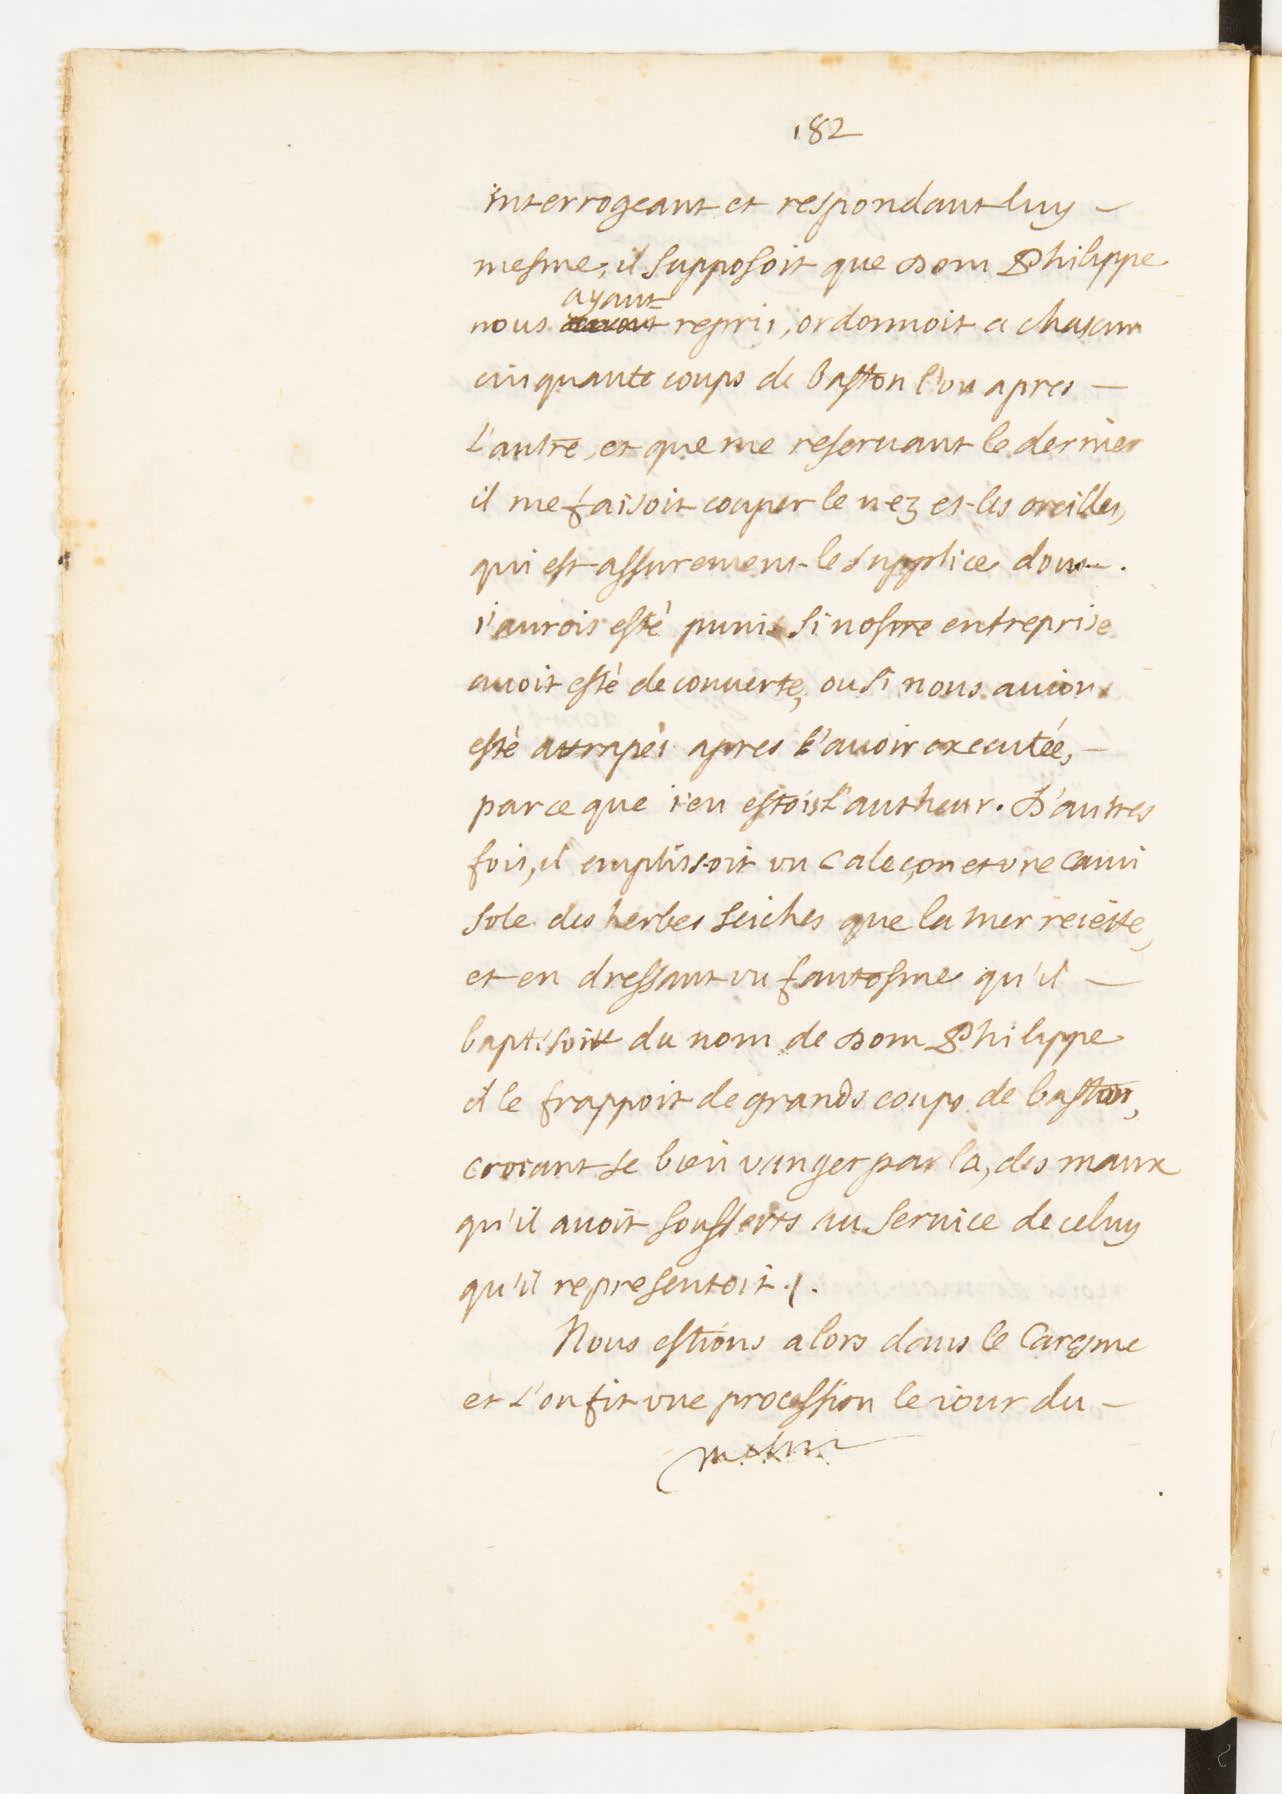 182
interrogeant et respondant luy –
mesme, il supposoit que Dom Philippe
ayant
nous repris, ordonnoit a chascun
cinquante coups de baston l'un apres –
l'autre, et que me reservant le dernier
il me faisoit couper le nez et les oreilles,
qui est assurement le supplice dont.
i'aurois esté puni si nostre entreprise
avoit esté deconverte, ou si nous avions
esté attrapés apres l'avoir executée, –
parce que i'en estois l'autheur. D'autres
fois, il emplissoit un caleçon et une cami
sole des herbes seiches que la mer reiette,
et en dressant un fantosme qu'il –
baptisoitt du nom de Dom Philippe
il le frappoit de grands coups de baston,
croiant se bien vanger par la, des maux
qu'il avoit soufferts au service de celuy
qu'il representoit ./.
Nous estions alors dans le Caresme
et l'on fit une procession le iour du –